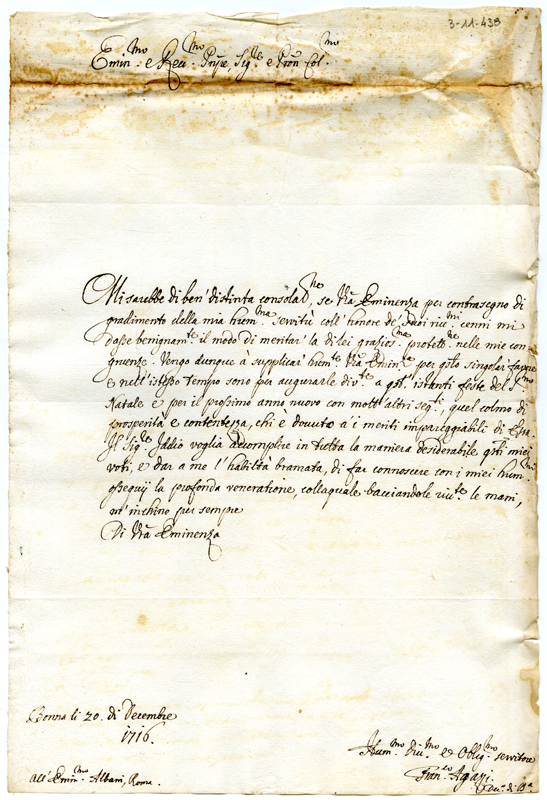 3-11-438
Emin.mo e Reu.mo Prñpe, Sig.re e Prõn Col.mo
Mi sarebbe di ben' distinta consolat.ne, se Vrã Eminenza per contrasegno di
gradimento della mia hum.ma servitù coll' honore de' suoi riu.mi cenni mi
dasse benignam.te il modo di meritar' la di lei grasios.ma protett.ne nelle mie con,
gruenze. Vengo dunque à supplicar' hum.te Vrã Emin.a per q̃sto singolar
e nell' istesso tempo sono per augurarle div.te a q̃st' istanti feste del S.mo
Natale e per il prossimo anno nuovo con molt' altri seg.ti, quel colmo di
prosperità e contentezza, chi è douuto a i meriti impareggiabili di Essa.
Il Sig.re Iddio voglia adcomplire in tutta la maniera desiderabile q̃sti miei
voti, e dar a me l' habiltà bramata, di far connoscere con i miei hum.mi
ossequij la profonda veneratione, collaquale bacciandole riu.te le mani,
m' inchino per sempre
Di Vrã Eminenza
Bonna li 20. di Decembre
1716.
Hum.mo Diu.mo et Oblig.mo servitore
Fran.co
All' Emin.mo Albani, Roma.